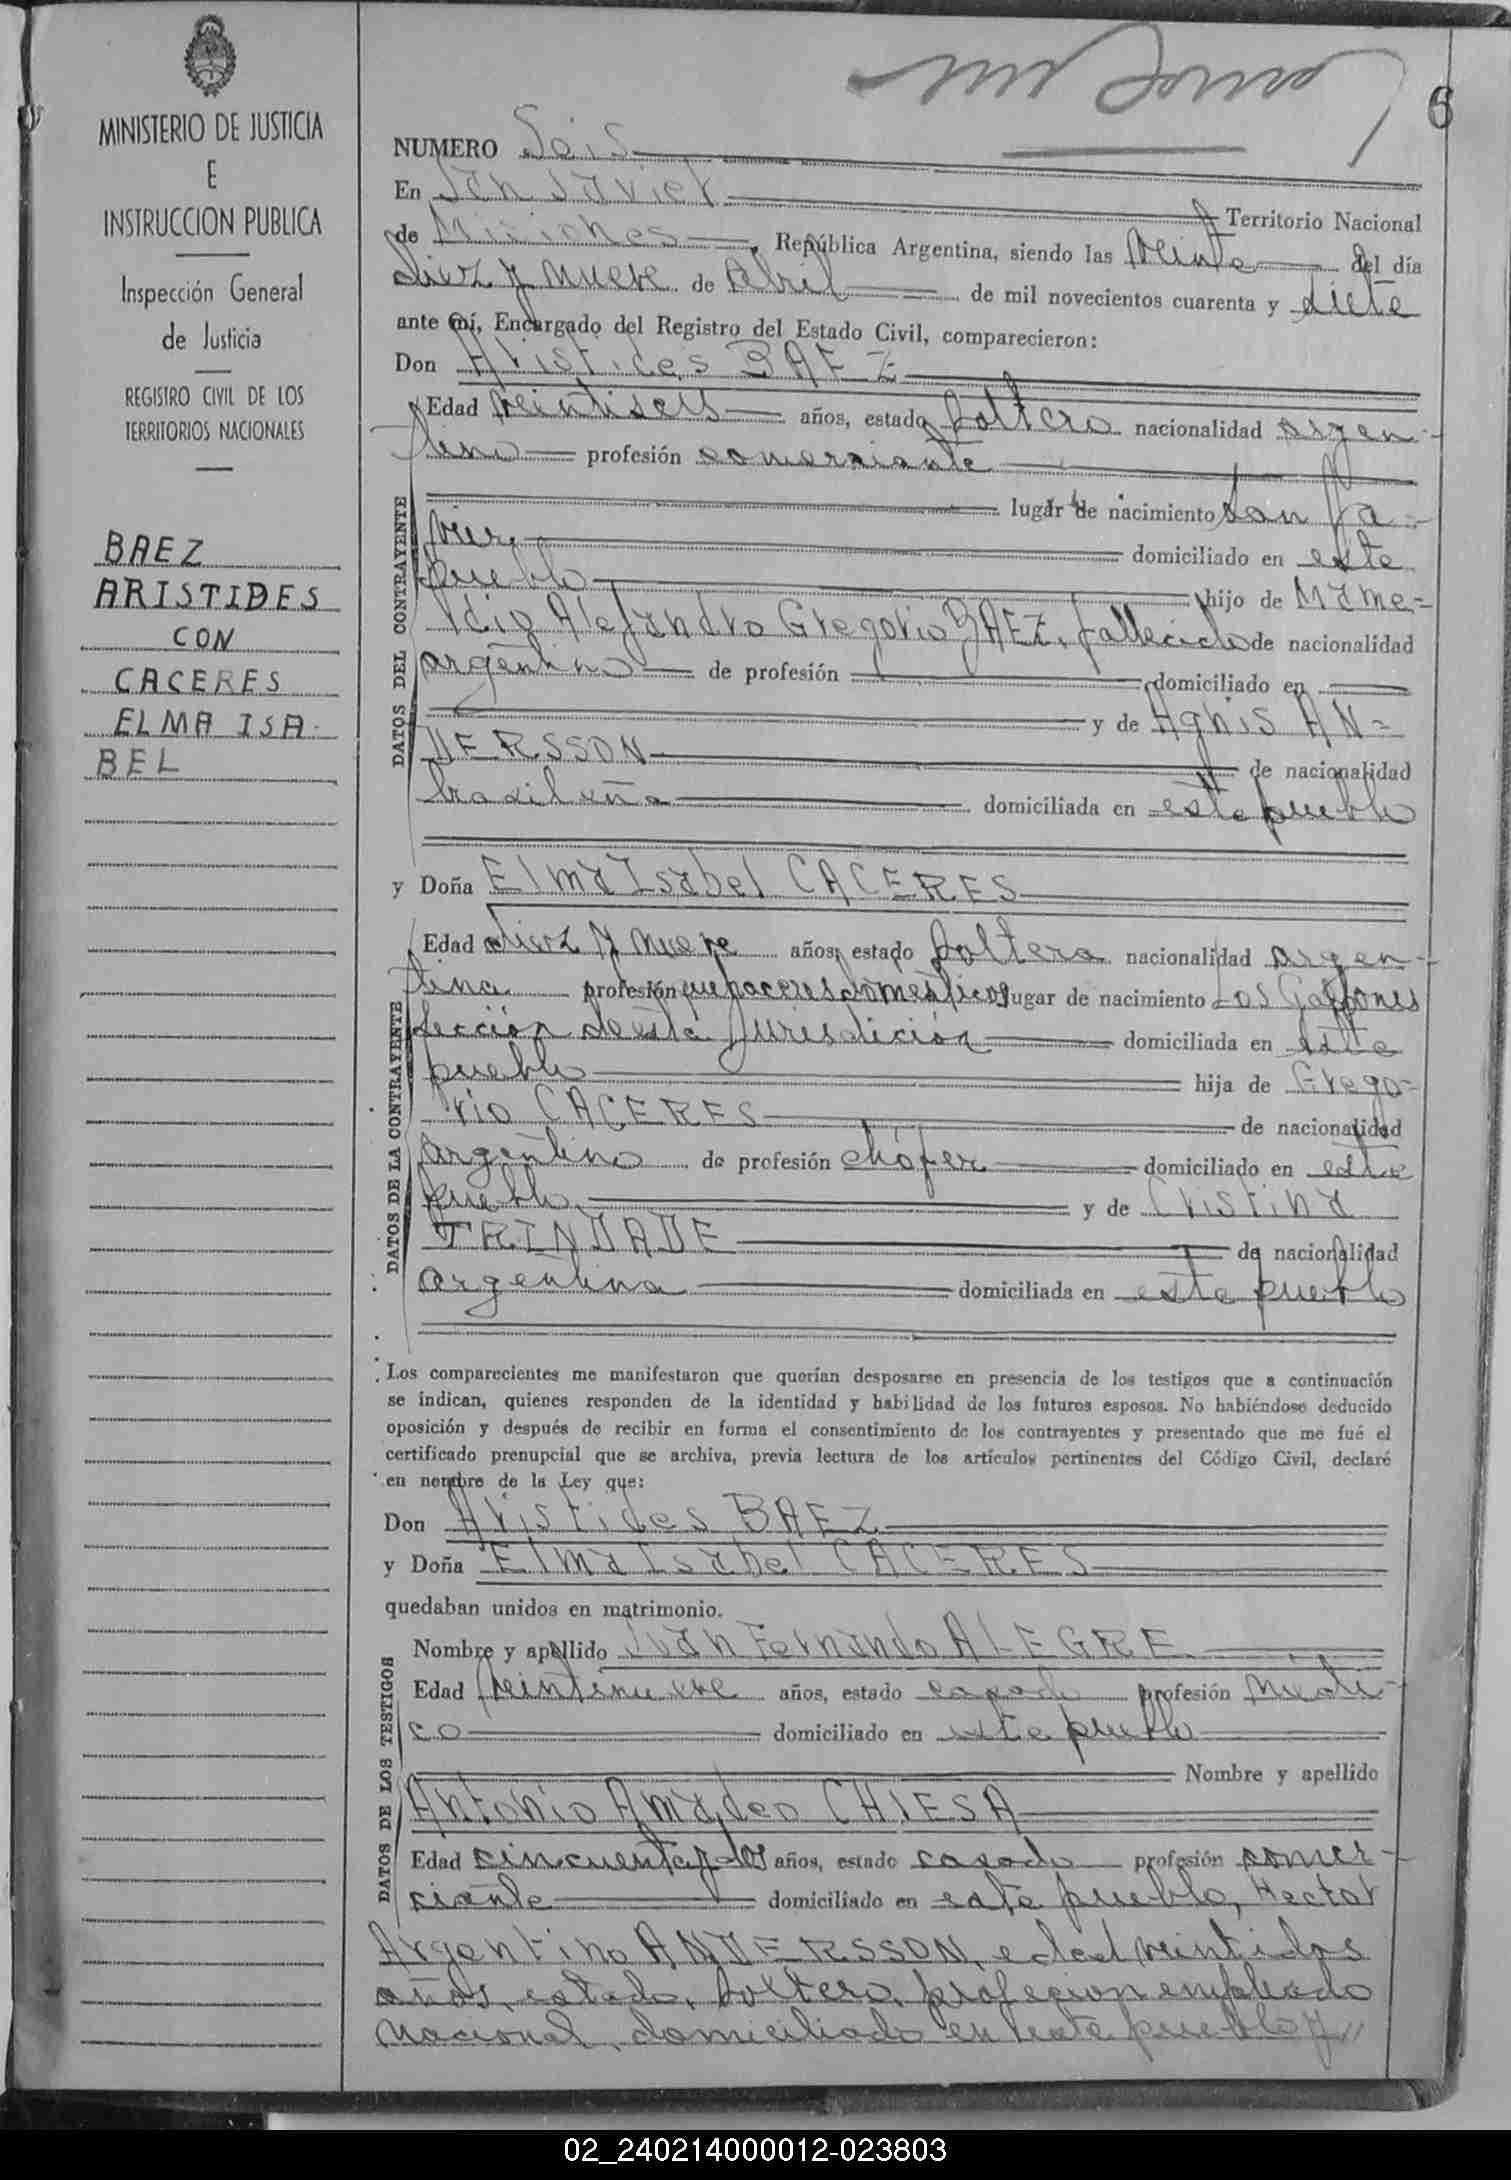 6
MINISTERIO DE JUSTICIA
E
INSTRUCCION PUBLICA
Inspección General
de Justicia
REGISTRO CIVIL DE LOS
TERRITORIOS NACIONALES
BAEZ
ARISTIDES
CON
CACERES
ELMA ISA-
BEL
NUMERO Seis
En San Javier Territorio Nacional
de Misiones, República Argentina, siendo las veinte del día
diez y nueve de Abril de mil novecientos cuarenta y siete
ante mí, Encargado del Registro del Estado Civil, comparecieron:
Don Aristides BAEZ
DATOS DEL CONTRAYENTE
Edad veintiseis años, estado soltero nacionalidad argen-
tino profesión comerciante
lugar de nacimiento San Ja-
vier, domiciliado en este
pueblo hijo de Mame-
rdio Alejandro Gregorio BAEZ, fallecido de nacionalidad
argentino de profesión domiciliado en
y de Agnis AN=
DERSSON de nacionalidad
brasileña domiciliada en este pueblo
y Doña Elma Isabel CACERES
DATOS DE LA CONTRAYENTE
Edad diez y nueve años, estado soltera nacionalidad argen-
tina profesión quehaceres domésticos lugar de nacimiento Los Galpones
sección de esta jurisdición domiciliada en este
pueblo hija de Grego=
rio CACERES de nacionalidad
argentino de profesión chófer domiciliado en este
pueblo y de Cristina
TRINDADE de nacionalidad
argentina domiciliada en este pueblo
Los comparecientes me manifestaron que querían desposarse en presencia de los testigos que a continuación
se indican, quienes responden de la identidad y habilidad de los futuros esposos. No habiéndose deducido
oposición y después de recibir en forma el consentimiento de los contrayentes y presentado que me fué el
certificado prenupcial que se archiva, previa lectura de los artículos pertinentes del Código Civil, declaré
en nombre de la Ley que:
Don Aristides BAEZ
y Doña Elma Isabel CACERES
quedaban unidos en matrimonio.
DATOS DE LOS TESTIGOS
Nombre y apellido Juan Fernando ALEGRE
Edad veintinueve años, estado casado profesión médi-
co domiciliado en este pueblo
Nombre y apellido
Antonio Amadeo CHIESA
Edad cincuenta y dos años, estado casado profesión comer-
ciante domiciliado en este pueblo, Hector
Argentino ANDERSSON, edad veintidos
años, estado, soltero, profecion empleado
nacional, domiciliado en este pueblo y //
02_240214000012-023803